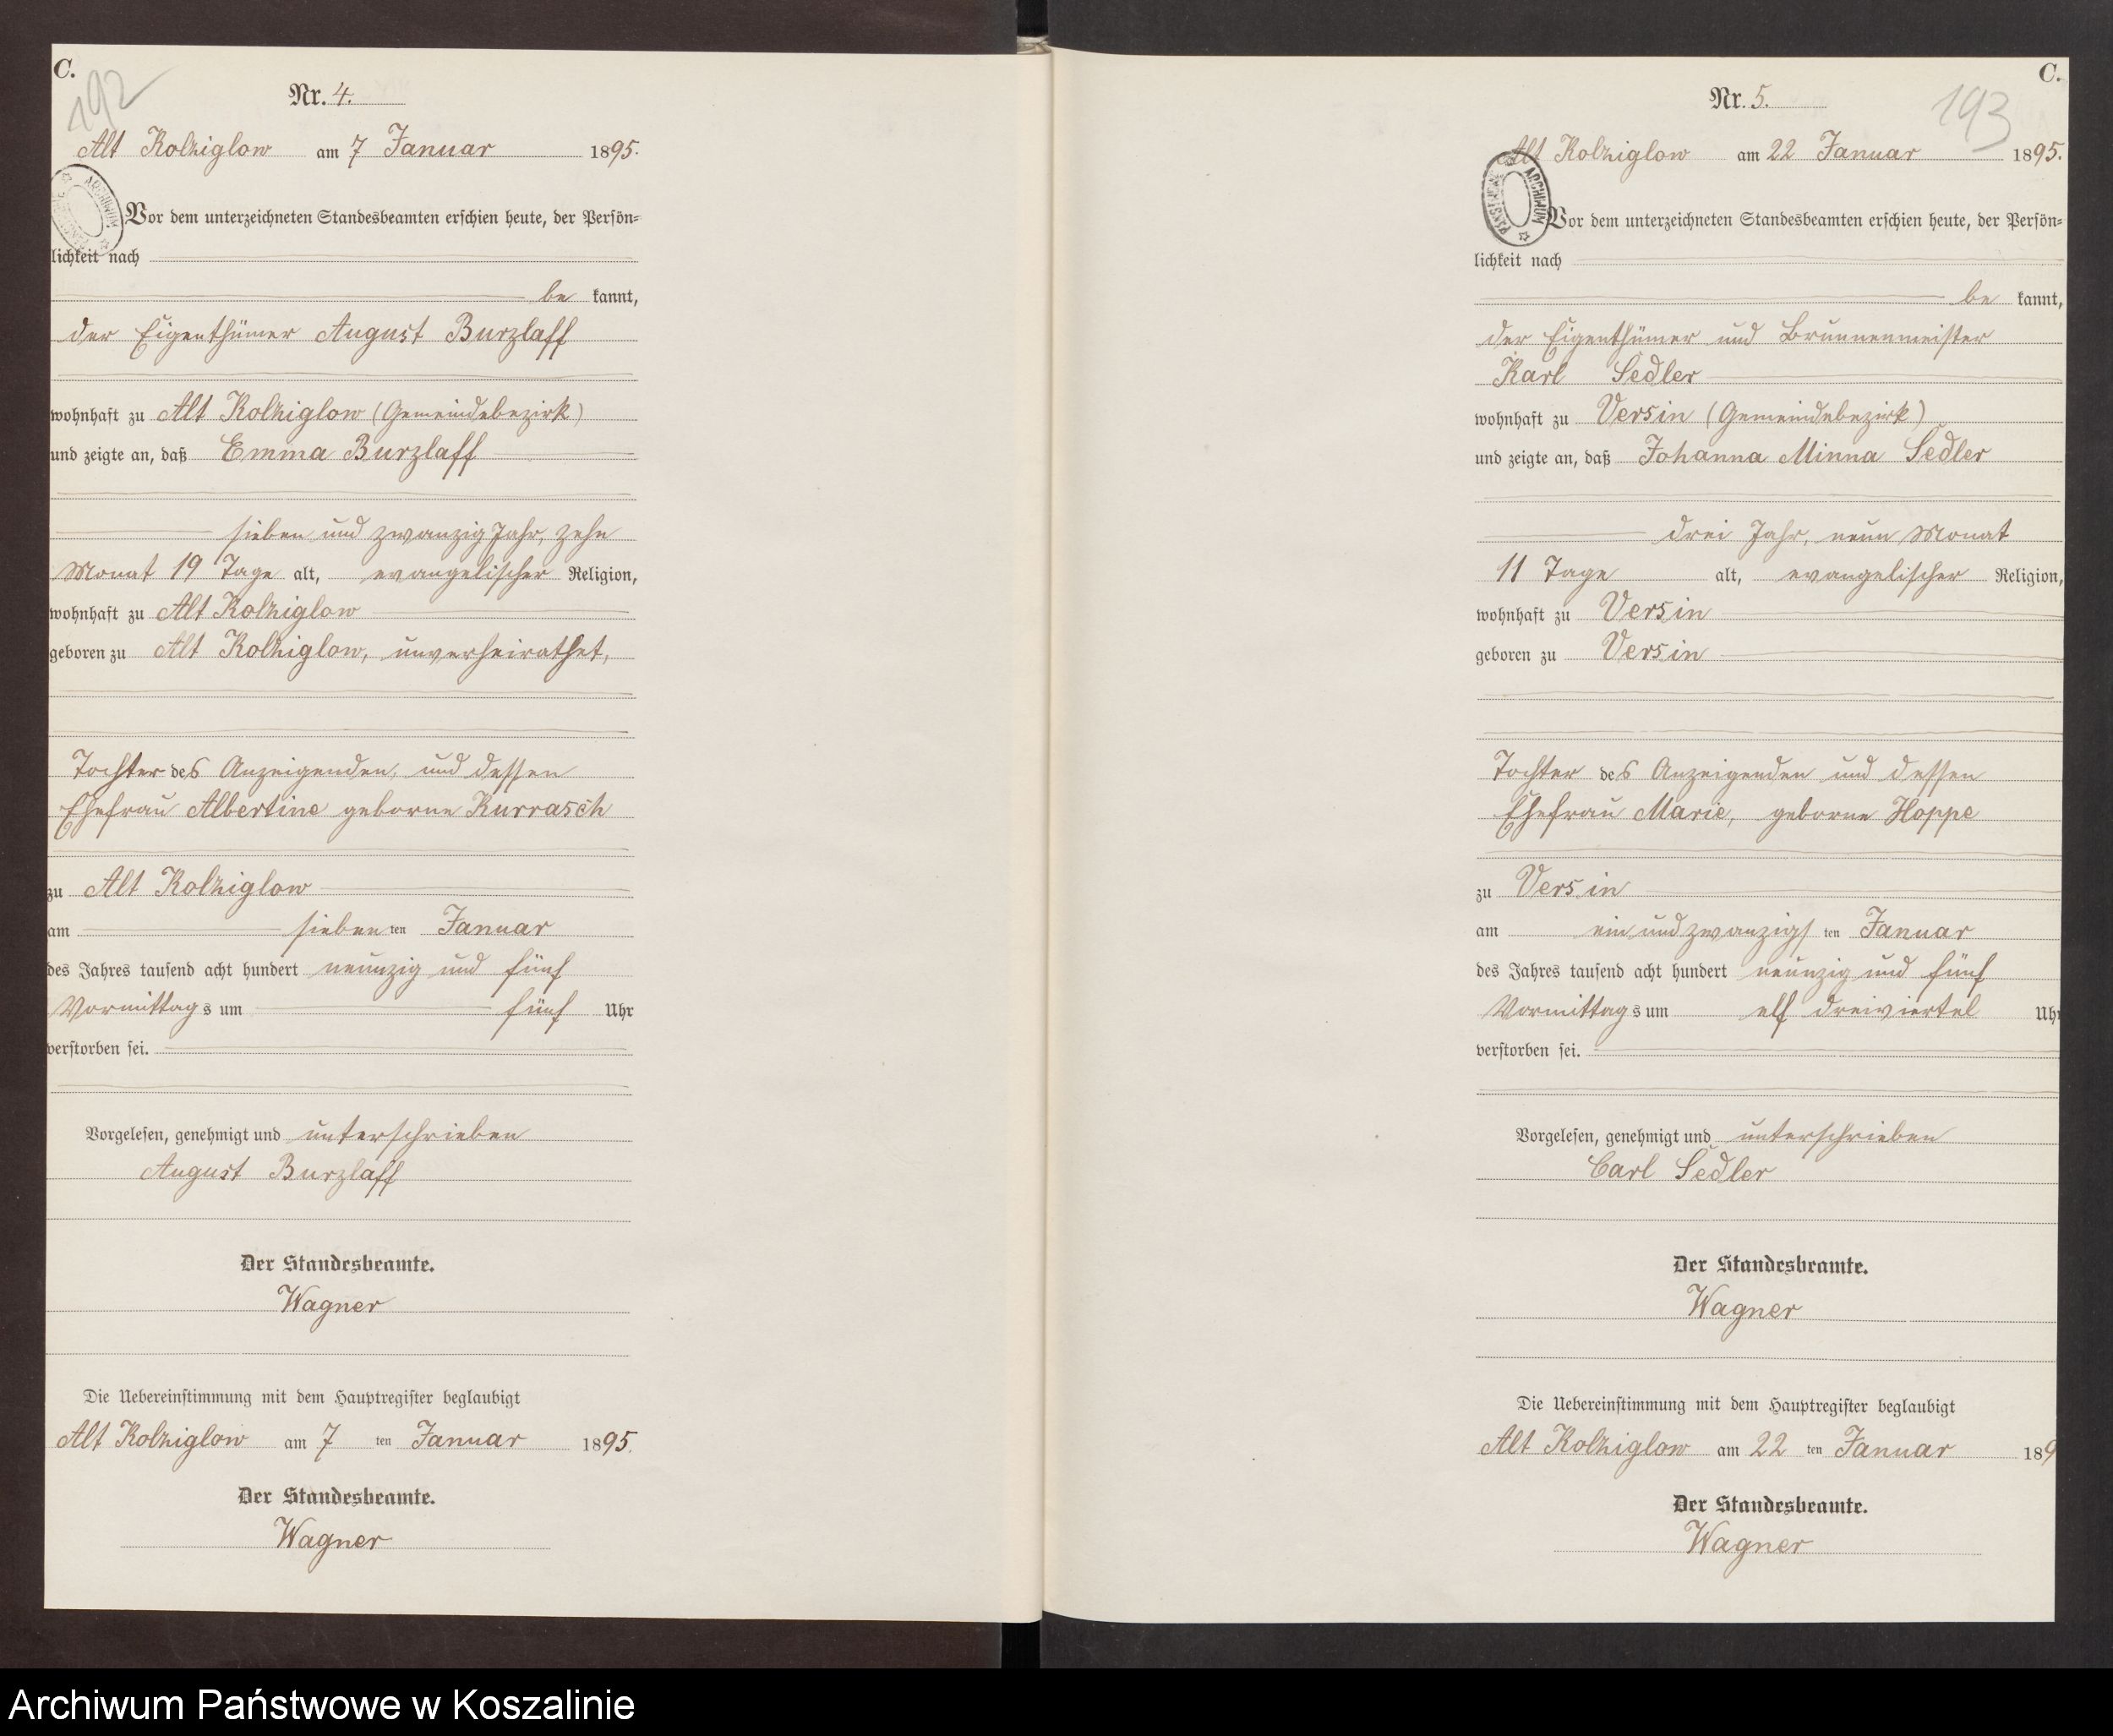 C.
192
Nr. 4.
Alt Kolziglow am 7 Januar 1895.
ARCHIWUM PAŃSTWOWE
Vor dem unterzeichneten Standesbeamten erschien heute, der Persön-
lichkeit nach
be kannt,
der Eigenthümer August Burzlaff
wohnhaft zu Alt Kolziglow (Gemeindebezirk)
und zeigte an, daß Emma Burzlaff
sieben und zwanzig Jahr, zehn
Monat 19 Tage alt, evangelischer Religion,
wohnhaft zu Alt Kolziglow
geboren zu Alt Kolziglow, unverheirathet,
Tochter des Anzeigenden, und dessen
Ehefrau Albertine geborne Kurrasch
zu Alt Kolziglow
am sieben ten Januar
des Jahres tausend acht hundert neunzig und fünf
Vormittag s um fünf Uhr
verstorben sei.
Vorgelesen, genehmigt und unterschrieben
August Burzlaff
Der Standesbeamte.
Wagner
Die Uebereinstimmung mit dem Hauptregister beglaubigt
Alt Kolziglow am 7 ten Januar 1895.
Der Standesbeamte.
Wagner
C.
193
Nr. 5.
Alt Kolziglow am 22 Januar 1895.
ARCHIWUM PAŃSTWOWE
Vor dem unterzeichneten Standesbeamten erschien heute, der Persön-
lichkeit nach
be kannt,
der Eigenthümer und Brunnenmeister
Karl Sedler
wohnhaft zu Versin (Gemeindebezirk)
und zeigte an, daß Johanna Minna Sedler
drei Jahr, neun Monat
11 Tage alt, evangelischer Religion,
wohnhaft zu Versin
geboren zu Versin
Tochter des Anzeigenden und dessen
Ehefrau Marie, geborne Hoppe
zu Versin
am ein und zwanzigs ten Januar
des Jahres tausend acht hundert neunzig und fünf
Vormittag s um elf dreiviertel Uhr
verstorben sei.
Vorgelesen, genehmigt und unterschrieben
Carl Sedler
Der Standesbeamte.
Wagner
Die Uebereinstimmung mit dem Hauptregister beglaubigt
Alt Kolziglow am 22 ten Januar 189
Der Standesbeamte.
Wagner
Archiwum Państwowe w Koszalinie